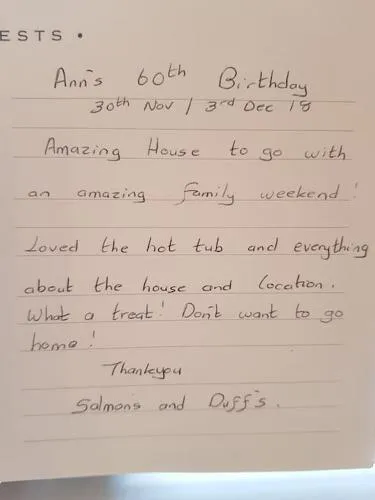 ESTS •
Ann's 60th Birthday
30th Nov / 3rd Dec 18
Amazing House to go with
an amazing family weekend!
Loved the hot tub and everything
about the house and location.
What a treat! Don't want to go
home!
Thankyou
Salmons and Duff's.